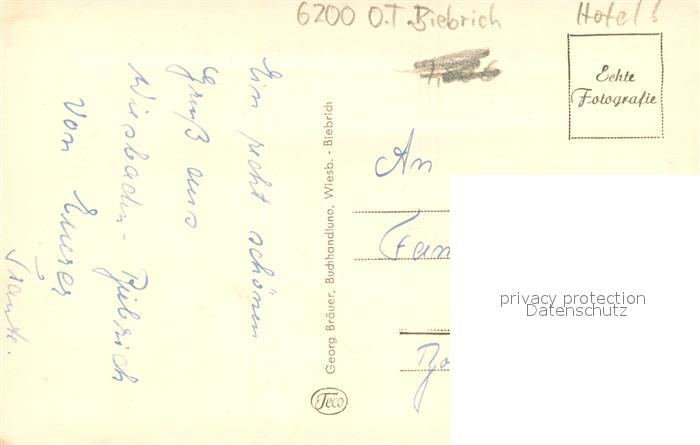 6200 O.T. Biebrich
Hotel!
Echte
Fotografie
Ein recht schönen
Gruß aus
Wiesbaden-Biebrich
von Eurer
Traute.
Georg Bräuer, Buchhandlung, Wiesb. - Biebrich
Feco
An
Fam
privacy protection
Datenschutz